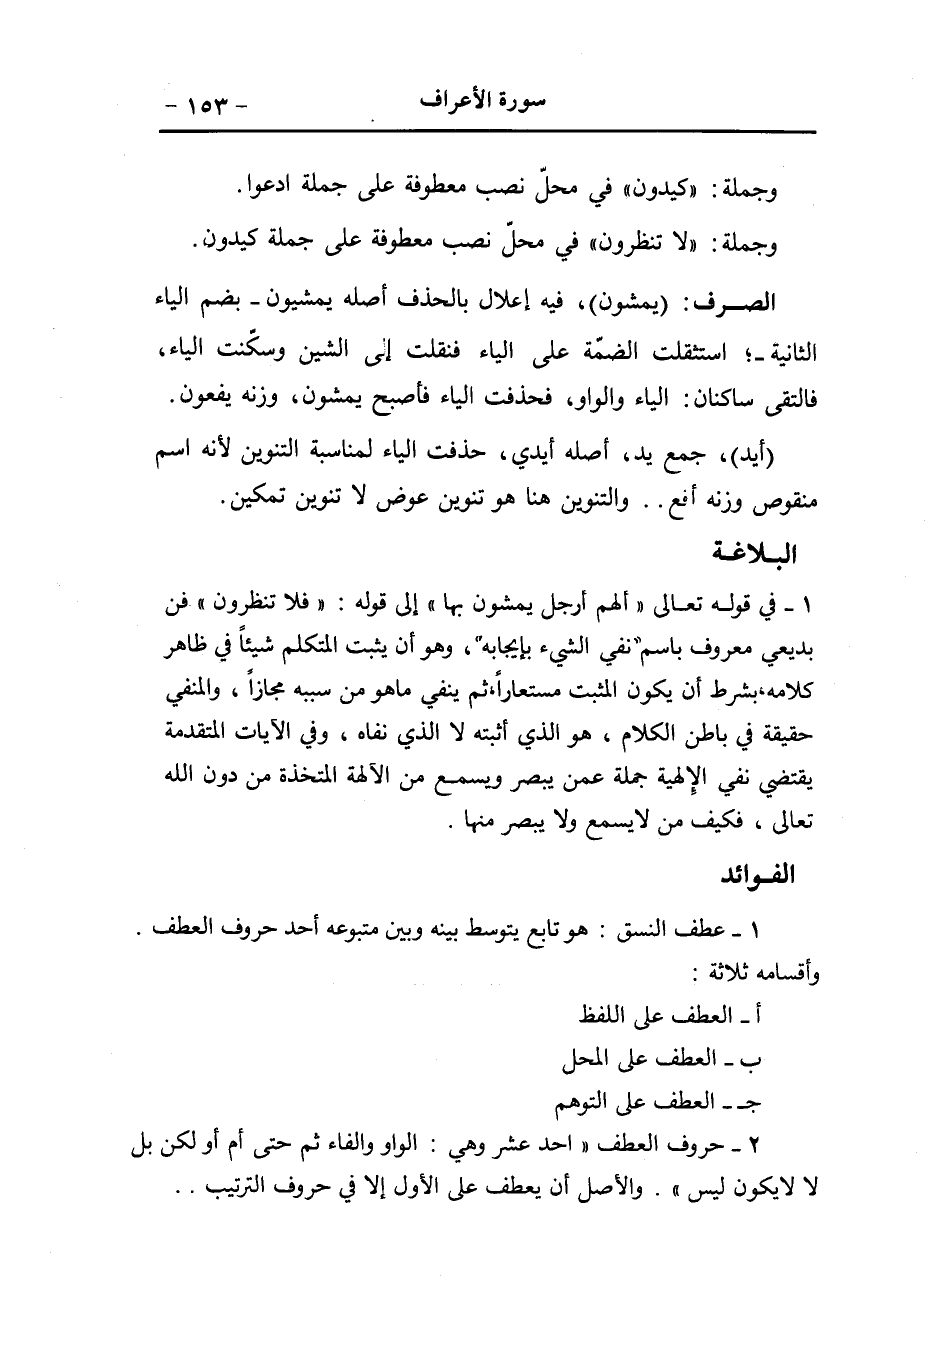 سورة الأعراف - ١٥٣ -
وجملة: «كيدون» في محلّ نصب معطوفة على جملة ادعوا.
وجملة: «لا تنظرون» في محلّ نصب معطوفة على جملة كيدون.
الصـرف: (يمشون)، فيه إعلال بالحذف أصله يمشيون ـ بضم الياء
الثانية ـ؛ استثقلت الضمّة على الياء فنقلت إلى الشين وسكّنت الياء،
فالتقى ساكنان: الياء والواو، فحذفت الياء فأصبح يمشون، وزنه يفعون.
(أيد)، جمع يد، أصله أيدي، حذفت الياء لمناسبة التنوين لأنه اسم
منقوص وزنه أفع.. والتنوين هنا هو تنوين عوض لا تنوين تمكين.
البـلاغـة
١ ـ في قولـه تعـالى « ألهم أرجل يمشون بها » إلى قوله : « فلا تنظرون » فن
بديعي معروف باسم"نفي الشيء بإيجابه"، وهو أن يثبت المتكلم شيئاً في ظاهر
كلامه،بشرط أن يكون المثبت مستعاراً،ثم ينفي ماهو من سببه مجازاً ، والمنفي
حقيقة في باطن الكلام ، هو الذي أثبته لا الذي نفاه ، وفي الآيات المتقدمة
يقتضي نفي الإلهية جملة عمن يبصر ويسمـع من الآلهة المتخذة من دون الله
تعالى ، فكيف من لايسمع ولا يبصر منها .
الفـوائد
١ ـ عطف النسق : هو تابع يتوسط بينه وبين متبوعه أحد حروف العطف .
وأقسامه ثلاثة :
أ ـ العطف على اللفظ
ب ـ العطف على المحل
جـ ـ العطف على التوهم
٢ ـ حروف العطف « احد عشر وهي : الواو والفاء ثم حتى أم أو لكن بل
لا لايكون ليس » . والأصل أن يعطف على الأول إلا في حروف الترتيب . .